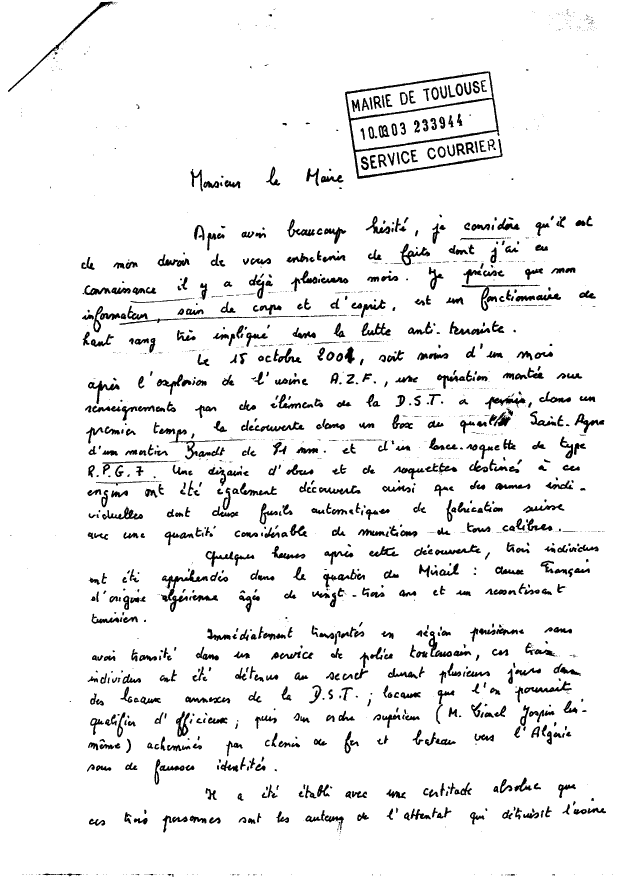 MAIRIE DE TOULOUSE
10.09.03 233944
SERVICE COURRIER
Monsieur le Maire
Après avoir beaucoup hésité, je considère qu'il est
de mon devoir de vous entretenir de faits dont j'ai eu
connaissance il y a déjà plusieurs mois. Je précise que mon
informateur, sain de corps et d'esprit, est un fonctionnaire de
haut rang très impliqué dans la lutte anti-terroriste.
Le 15 octobre 2001, soit moins d'un mois
après l'explosion de l'usine A.Z.F., une opération montée sur
renseignements par des éléments de la D.S.T. a permis, dans un
premier temps, la découverte dans un box du quartier Saint-Agne
d'un mortier Brandt de 81 mm. et d'un lance-roquette de type
R.P.G.7. Une dizaine d'obus et de roquettes destinés à ces
engins ont été également découverts ainsi que des armes indi-
viduelles dont deux fusils automatiques de fabrication suisse
avec une quantité considérable de munitions de tous calibres.
Quelques heures après cette découverte, trois individus
ont été appréhendés dans le quartier du Mirail : deux Français
d'origine algérienne âgés de vingt-trois ans et un ressortissant
tunisien.
Immédiatement transportés en région parisienne sans
avoir transité dans un service de police toulousain, ces trois
individus ont été détenus au secret durant plusieurs jours dans
des locaux annexes de la D.S.T. ; locaux que l'on pourrait
qualifier d'officieux ; puis sur ordre supérieur (M. Lionel Jospin lui-
même) acheminés par chemin de fer et bateau vers l'Algérie
sous de fausses identités.
Il a été établi avec une certitude absolue que
ces trois personnes sont les auteurs de l'attentat qui détruisit l'usine